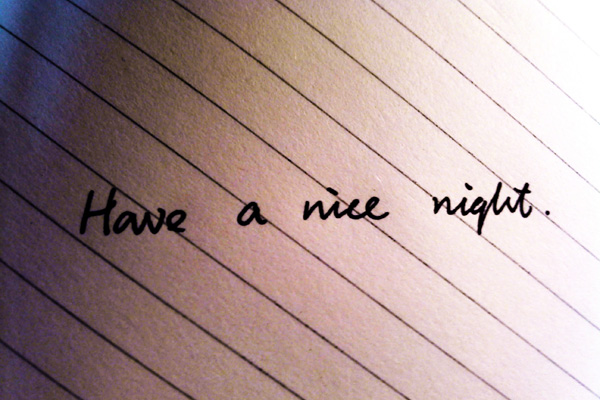 Have a nice night.